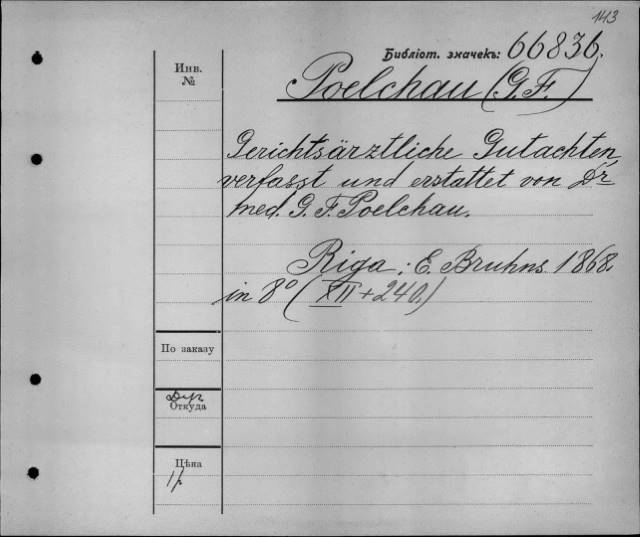 143
Библіот. значекъ: 66836.
Инв.
№
Poelchau (G. F.)
Gerichtsärztliche Gutachten,
verfasst und erstattet von Dr
med. G. F. Poelchau.
Riga: E. Bruhns 1868.
in 8° (XII + 240.)
По заказу
Откуда
Цѣна
1р